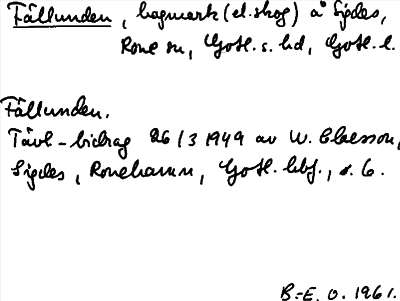 Fällunden, hagmark (el. skog) å Sigdes,
Rone sn, Gotl. s. hd, Gotl. l.
Fällunden.
Tävl-bidrag 26/3 1949 av W. Claesson,
Sigdes, Ronehamn, Gotl. hbf., s. 6.
B.-E. O. 1961.